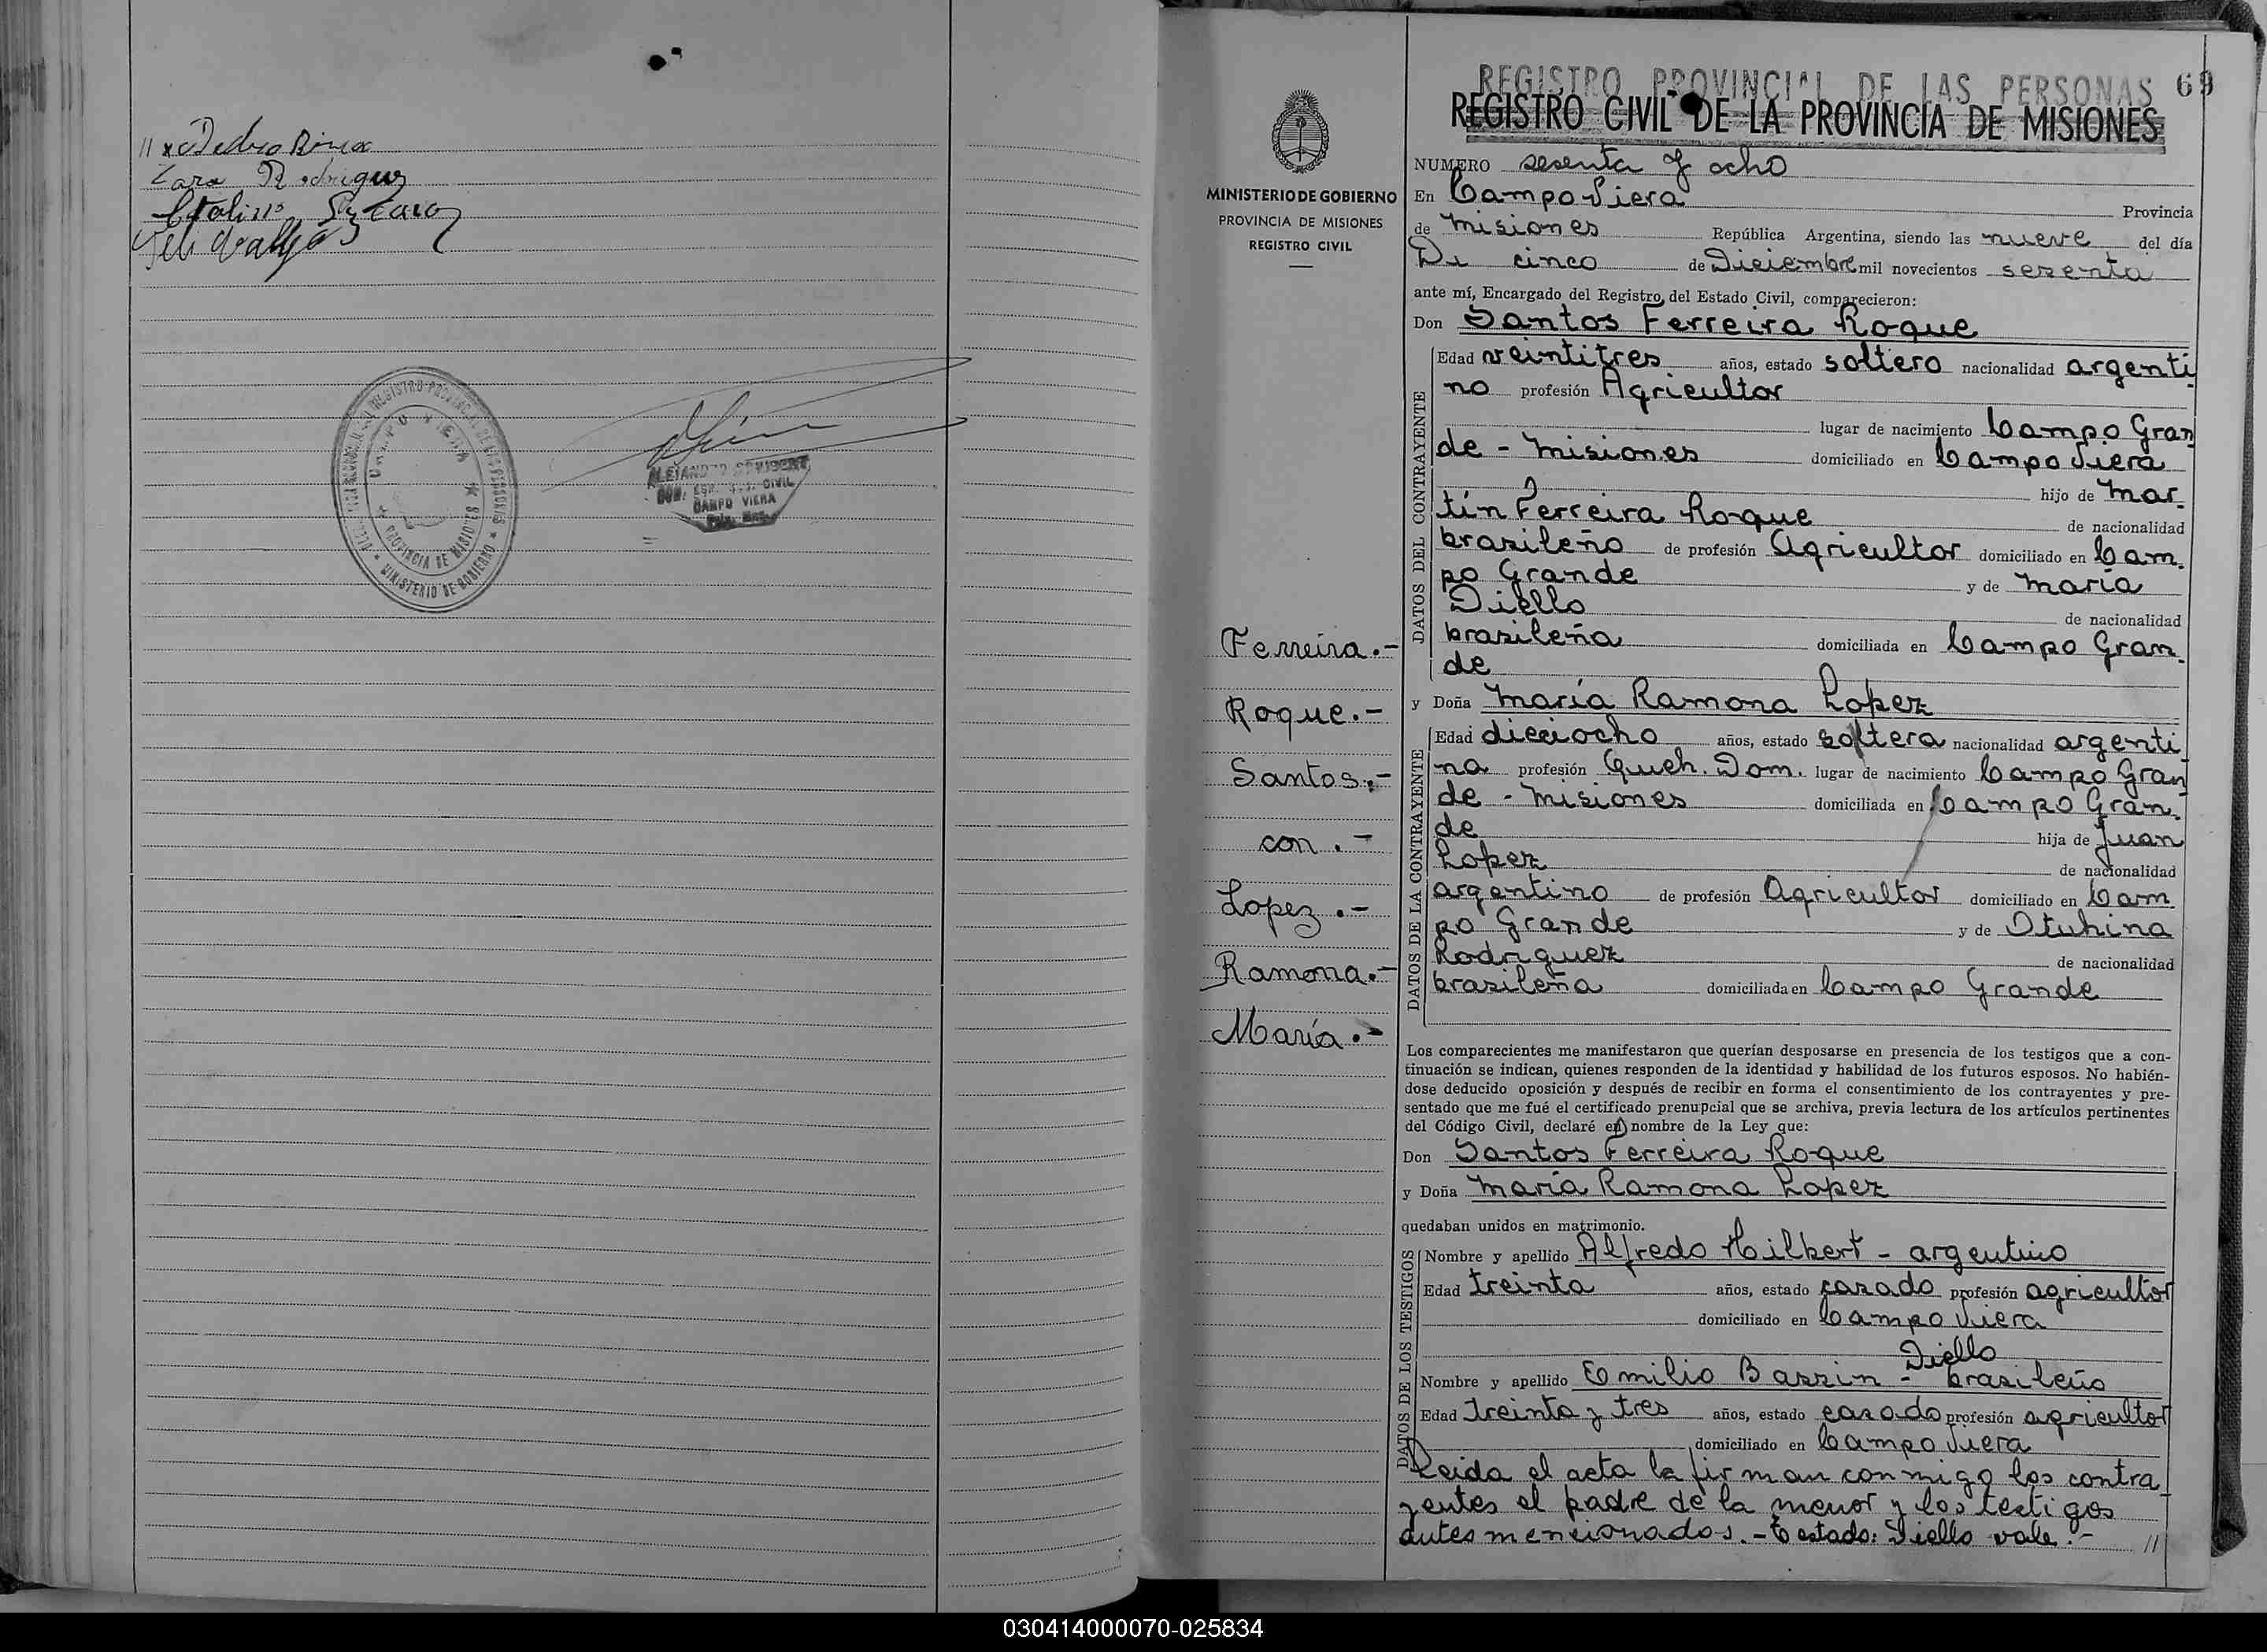 Rodriguez
REGISTRO PROVINCIAL DE LAS PERSONAS
MINISTERIO DE GOBIERNO
CAMPO VIERA
PROVINCIA DE MISIONES
CAMPO VIERA
REGISTRO PROVINCIAL DE LAS PERSONAS 69
REGISTRO CIVIL DE LA PROVINCIA DE MISIONES
MINISTERIO DE GOBIERNO
PROVINCIA DE MISIONES
REGISTRO CIVIL
Ferreira.-
Roque.-
Santos.-
con.-
Lopez.-
Ramona.-
María.-
NUMERO sesenta y ocho
En Campo Viera Provincia
de Misiones República Argentina, siendo las nueve del día
cinco de Diciembre mil novecientos sesenta
ante mí, Encargado del Registro del Estado Civil, comparecieron:
Don Santos Ferreira Roque
DATOS DEL CONTRAYENTE
Edad veintitres años, estado soltero nacionalidad argenti
no profesión Agricultor
lugar de nacimiento Campo Gran
de - Misiones domiciliado en Campo Viera
hijo de Mar-
tín Ferreira Roque de nacionalidad
brasileño de profesión Agricultor domiciliado en Cam-
po Grande y de María
Diello de nacionalidad
brasileña domiciliada en Campo Gran-
de
y Doña María Ramona Lopez
DATOS DE LA CONTRAYENTE
Edad dieciocho años, estado soltera nacionalidad argenti
na profesión Queh. Dom. lugar de nacimiento Campo Gran
de - Misiones domiciliada en Campo Gran-
de hija de Juan
Lopez de nacionalidad
argentino de profesión Agricultor domiciliado en Cam
po Grande y de Otuhina
Rodriguez de nacionalidad
brasileña domiciliada en Campo Grande
Los comparecientes me manifestaron que querían desposarse en presencia de los testigos que a con-
tinuación se indican, quienes responden de la identidad y habilidad de los futuros esposos. No habién-
dose deducido oposición y después de recibir en forma el consentimiento de los contrayentes y pre-
sentado que me fué el certificado prenupcial que se archiva, previa lectura de los artículos pertinentes
del Código Civil, declaré en nombre de la Ley que:
Don Santos Ferreira Roque
y Doña María Ramona Lopez
quedaban unidos en matrimonio.
DATOS DE LOS TESTIGOS
Nombre y apellido Alfredo Hilbert - argentino
Edad treinta años, estado casado profesión agricultor
domiciliado en Campo Viera
Diello
Nombre y apellido Emilio Bazzin - brasileño
Edad treinta y tres años, estado casado profesión agricultor
domiciliado en Campo Viera
Leida el acta la firman conmigo los contra
yentes el padre de la menor y los testigos
antes mencionados. - Testado: Diello vale.- //
030414000070-025834